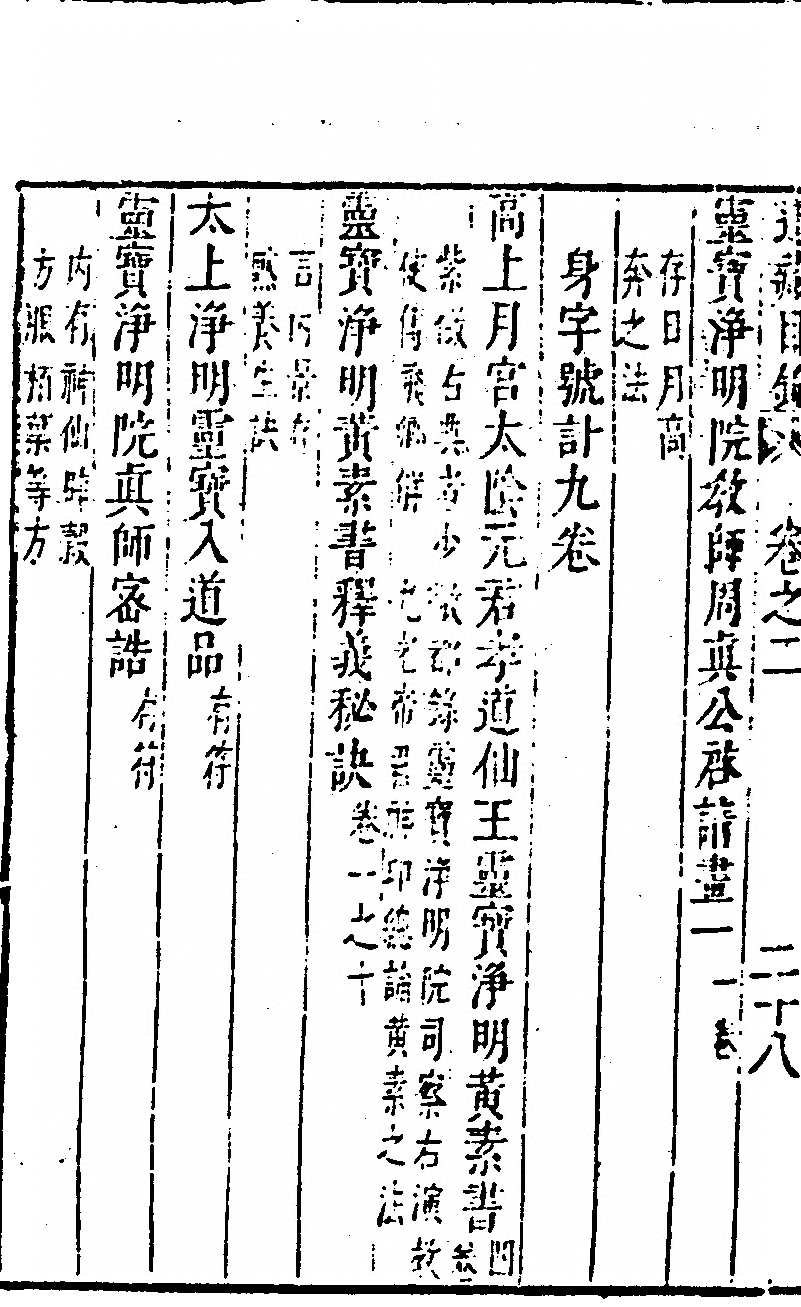 道藏目錄 卷之二 二十八
靈寶淨明院教師周真公啓請畫一 一卷
存日月高
奔之法
身字號計九卷
高上月宮太陰元君孝道仙王靈寶淨明黃素書 卷
紫微右 靈寶淨明院司察右演教
使 九老帝君 印總論黃素之法
靈寶淨明黃素書釋義秘訣 卷一之十
言內景存
養生訣
太上淨明靈寶入道品 有符
靈寶淨明院真師密誥 有符
內有神仙辟穀
方服栢葉等方